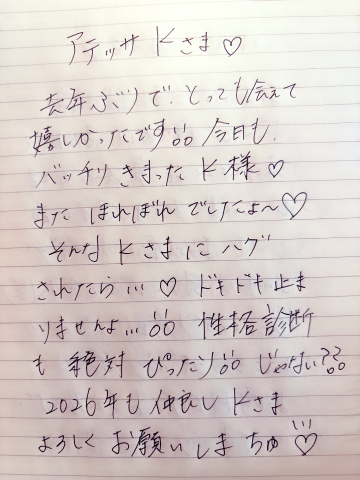 アテッサ Kさま♡
去年ぶりで、とっても会えて
嬉しかったです!! 今日も、
バッチリきまったK様♡
また ほれぼれ でしたよ〜♡
そんな Kさまに ハグ
されたら…♡ ドキドキ止ま
りませんよ…!! 性格診断
も 絶対 ぴったり!! じゃない??
2026年も 仲良し Kさま
よろしく お願いしまちゅ♡